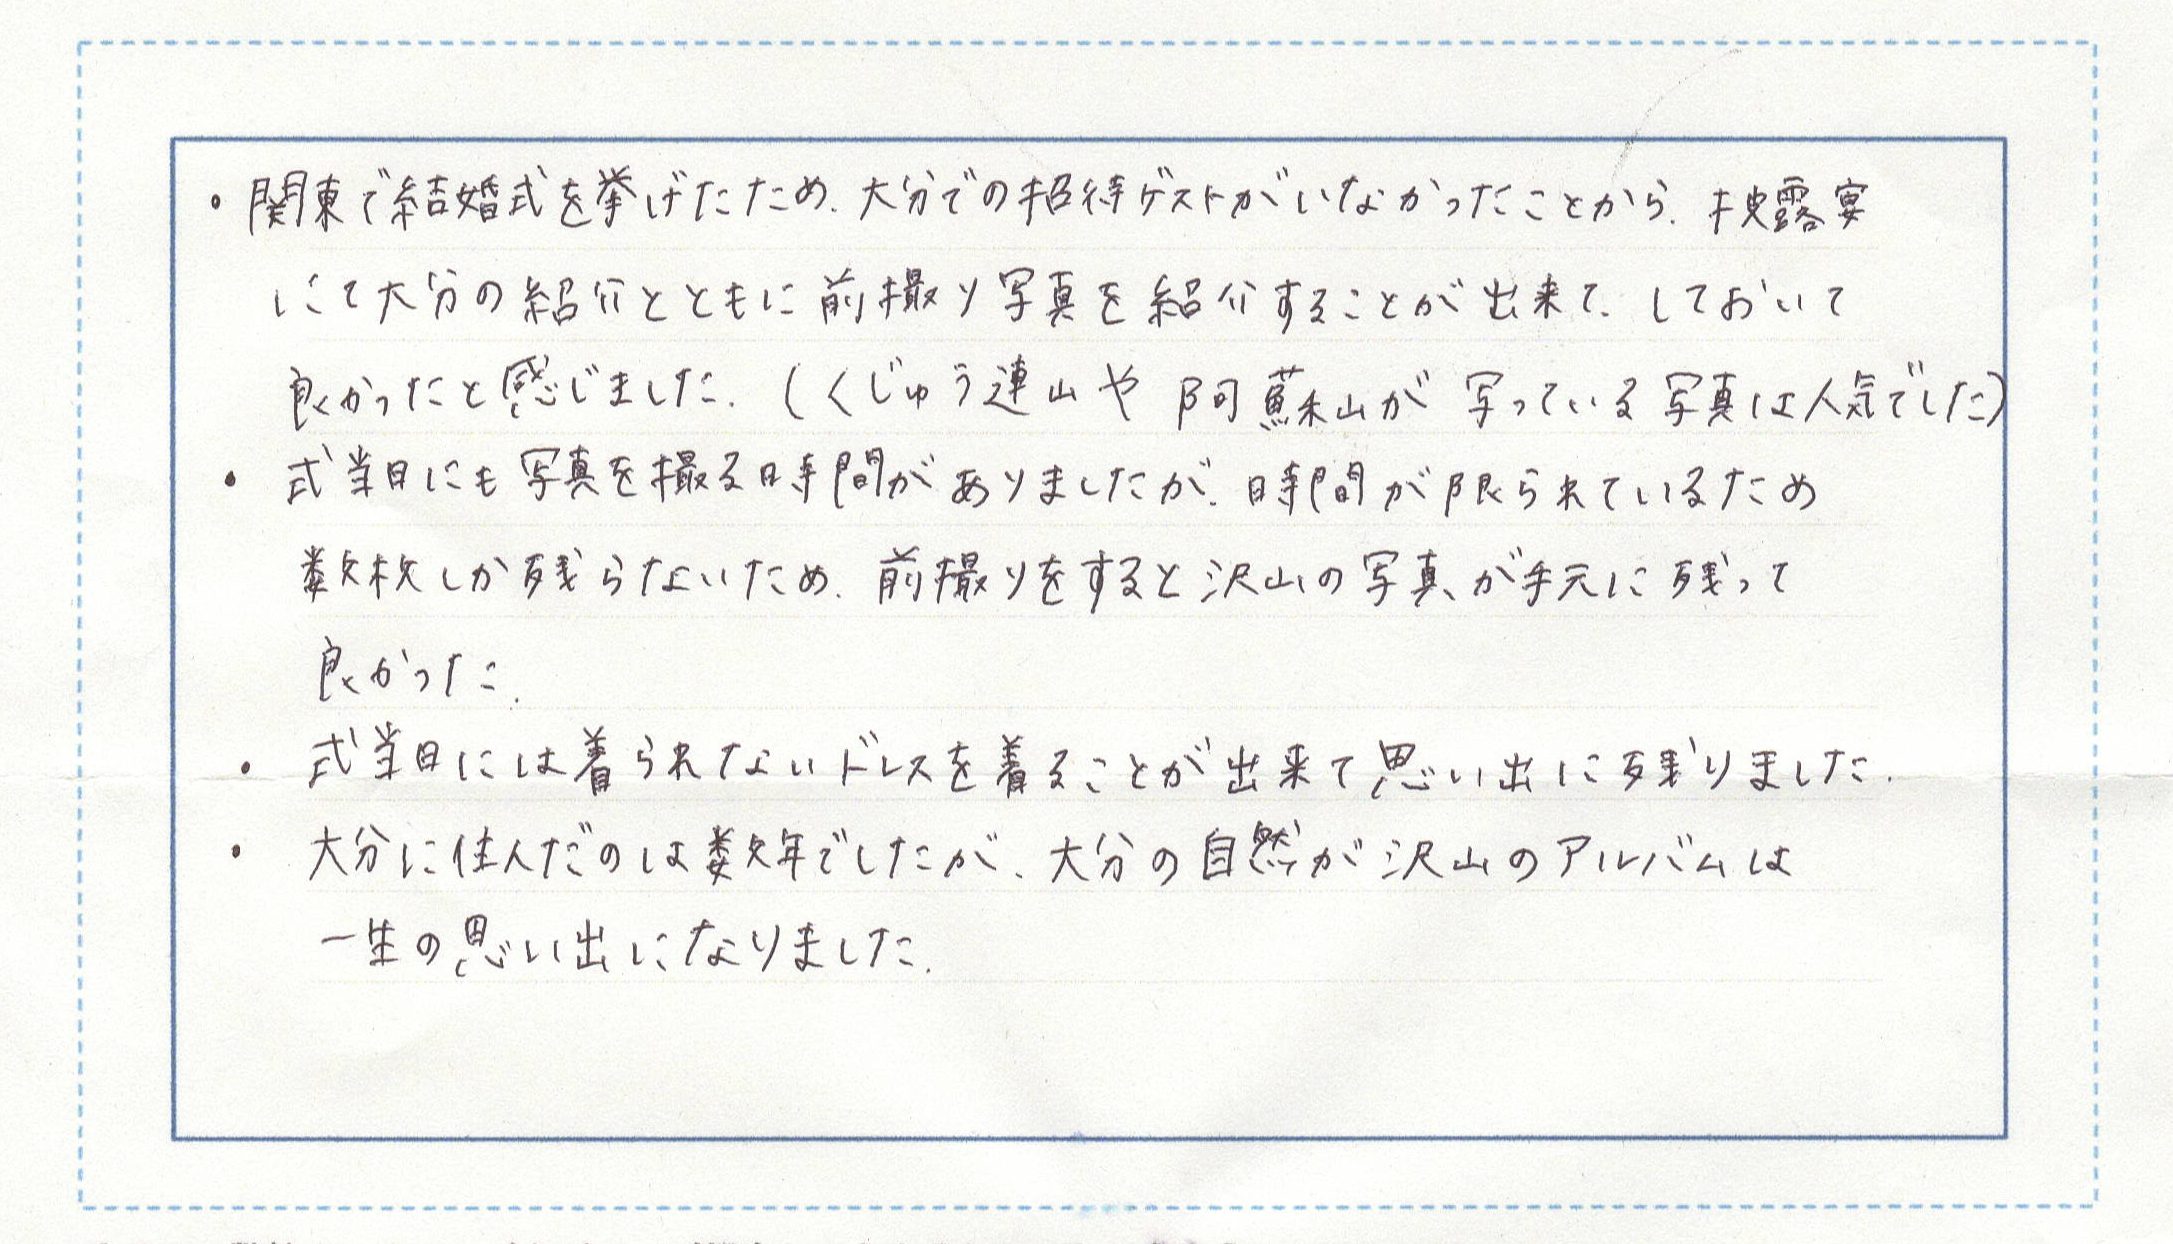 ・関東で結婚式を挙げたため、大分での招待ゲストがいなかったことから、披露宴
にて大分の紹介とともに前撮り写真を紹介することが出来て、しておいて
良かったと感じました。(くじゅう連山や阿蘇山が写っている写真は人気でした)
・式当日にも写真を撮る時間がありましたが、時間が限られているため
数枚しか残らないため、前撮りをすると沢山の写真が手元に残って
良かった。
・式当日には着られないドレスを着ることが出来て思い出に残りました。
・大分に住んだのは数年でしたが、大分の自然が沢山のアルバムは
一生の思い出になりました。